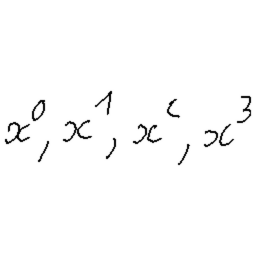 x^0, x^1, x^c, x^3